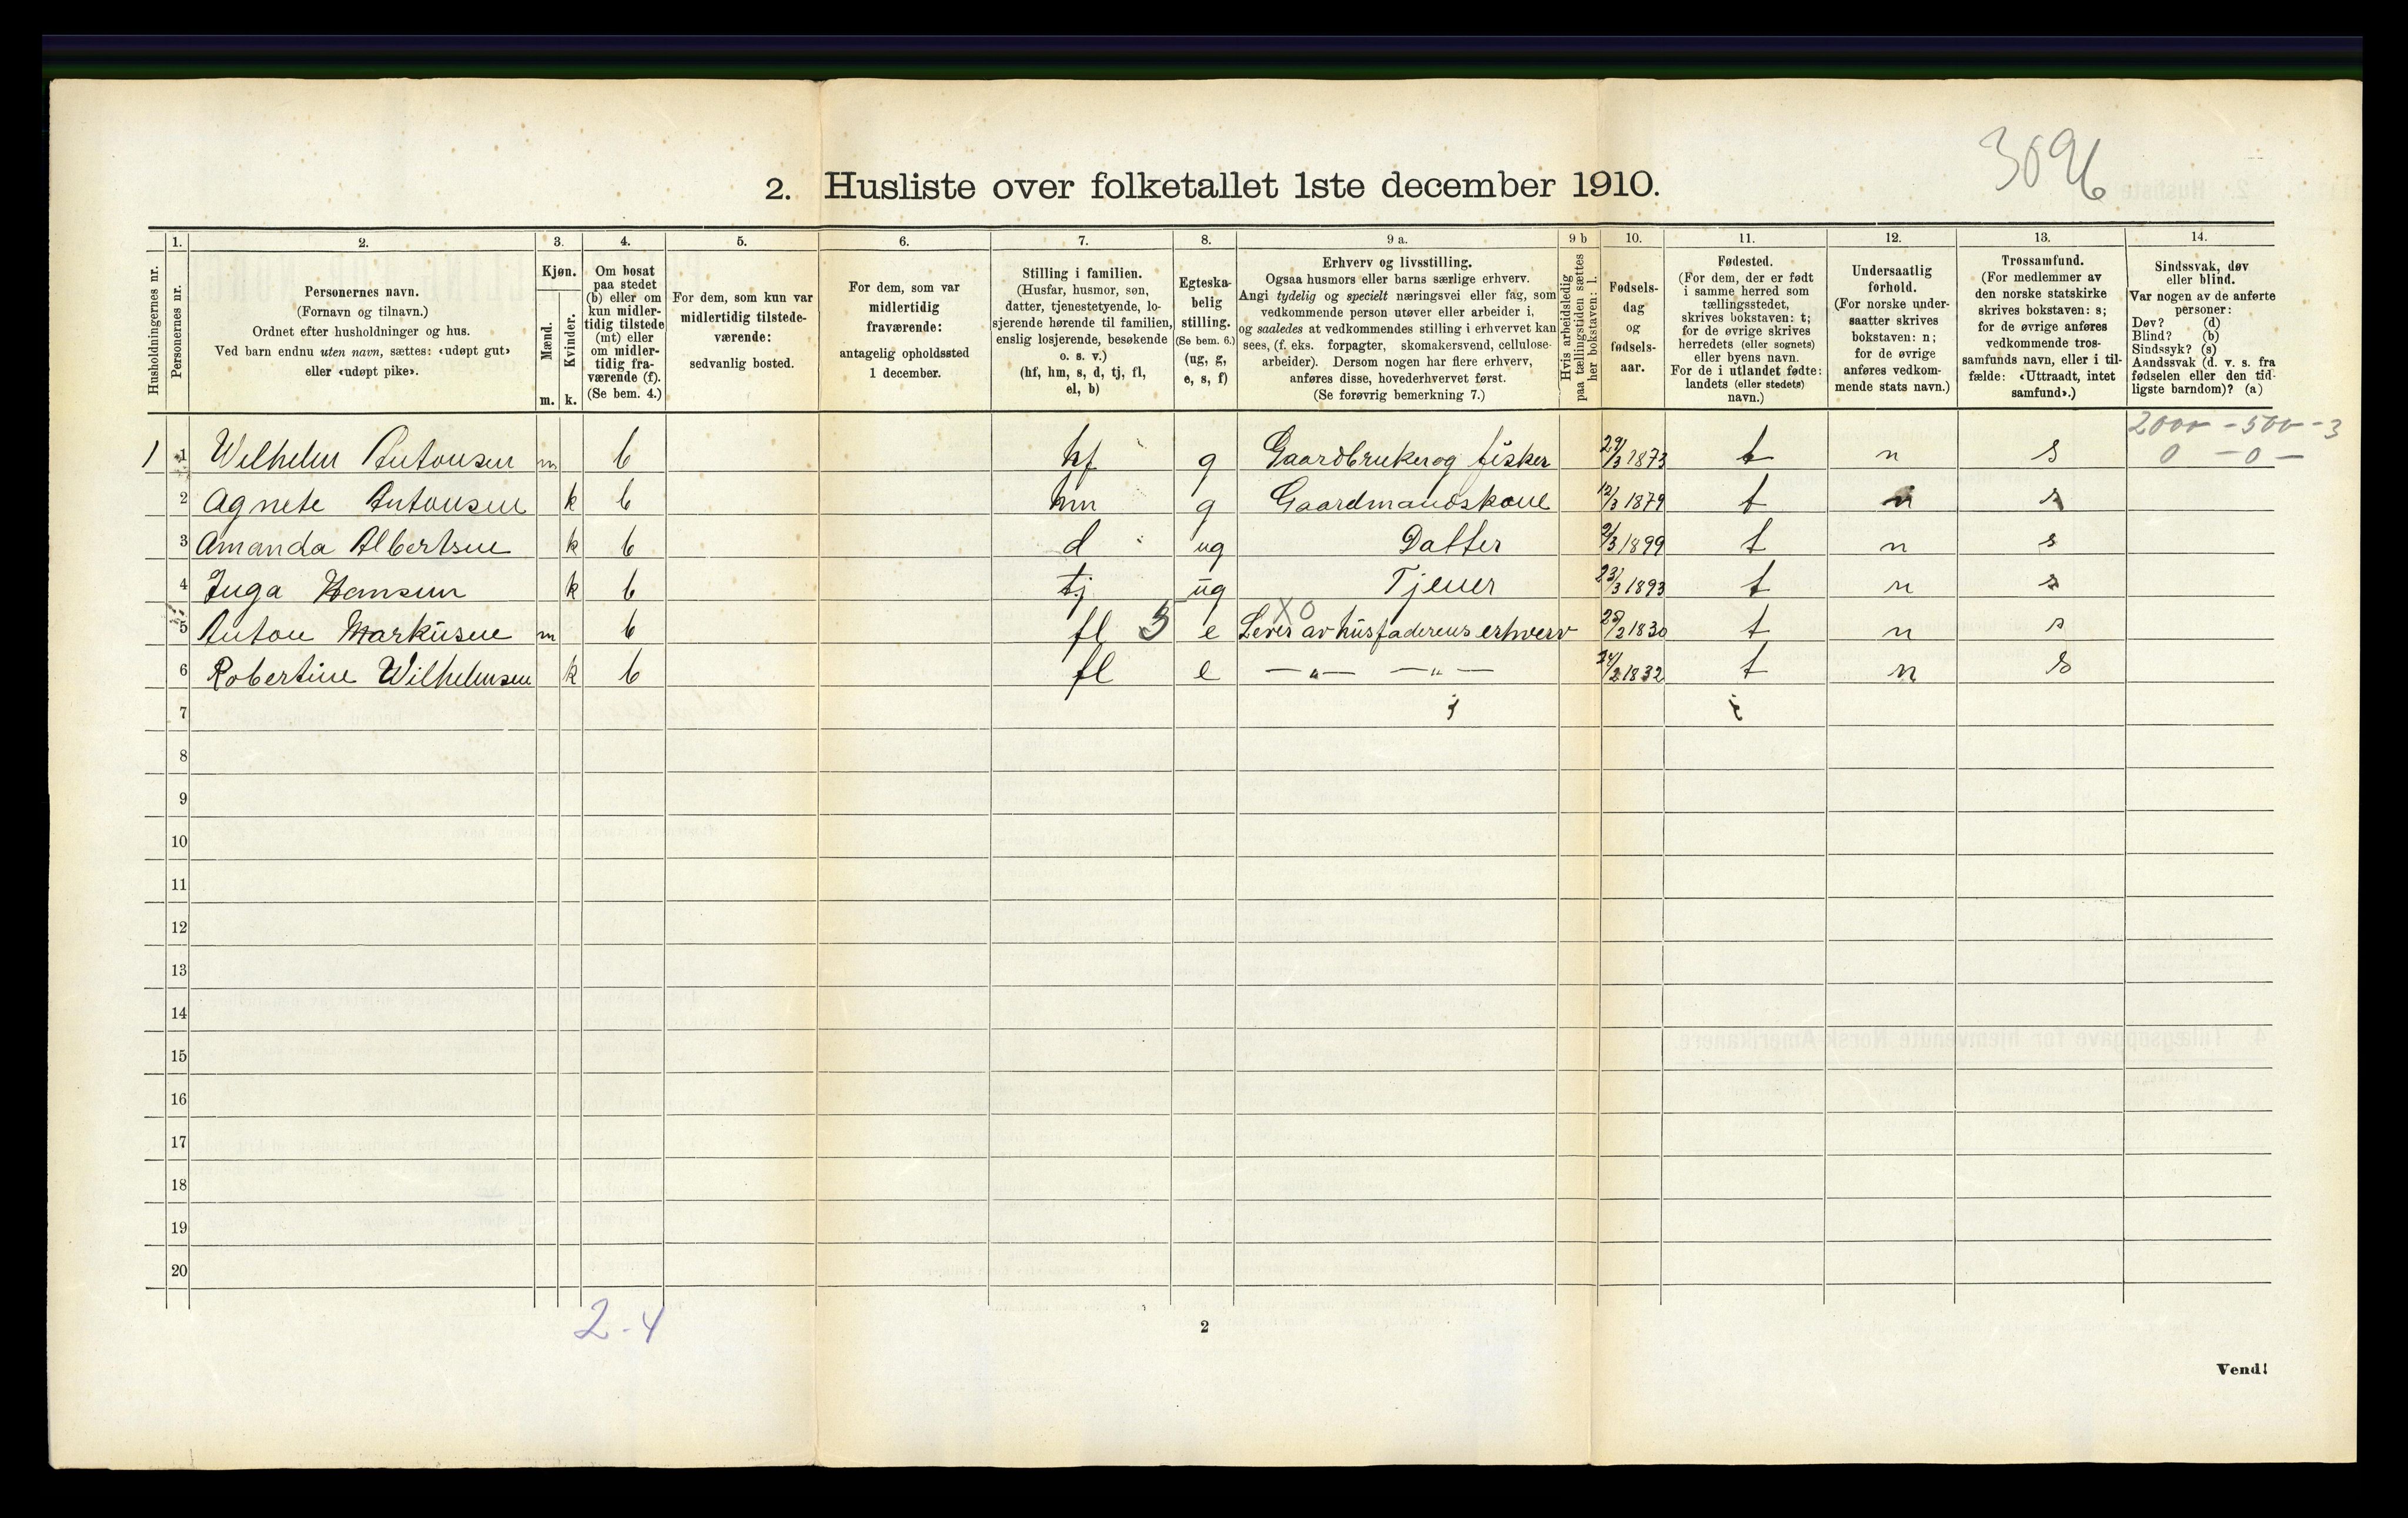 3096
2. Husliste over folketallet 1ste december 1910.
Husholdningernes nr.
1. Personernes nr.
2. Personernes navn.
(Fornavn og tilnavn.)
Ordnet efter husholdninger og hus.
Ved barn endnu uten navn, sættes: «udøpt gut»
eller «udøpt pike».
3. Kjøn.
Mænd. m.
Kvinder. k.
4. Om bosat
paa stedet
(b) eller om
kun midler-
tidig tilstede
(mt) eller
om midler-
tidig fra-
værende (f).
(Se bem. 4.)
5. For dem, som kun var
midlertidig tilstede-
værende:
sedvanlig bosted.
6. For dem, som var
midlertidig
fraværende:
antagelig opholdssted
1 december.
7. Stilling i familien.
(Husfar, husmor, søn,
datter, tjenestetyende, lo-
sjerende hørende til familien,
enslig losjerende, besøkende
o. s. v.)
(hf, hm, s, d, tj, fl,
el, b)
8. Egteska-
belig
stilling.
(Se bem. 6.)
(ug, g,
e, s, f)
9 a. Erhverv og livsstilling.
Ogsaa husmors eller barns særlige erhverv.
Angi tydelig og specielt næringsvei eller fag, som
vedkommende person utøver eller arbeider i,
og saaledes at vedkommendes stilling i erhvervet kan
sees, (f. eks. forpagter, skomakersvend, cellulose-
arbeider). Dersom nogen har flere erhverv,
anføres disse, hovederhvervet først.
(Se forøvrig bemerkning 7.)
9 b Hvis arbeidsledig
paa tællingstiden sættes
her bokstaven: l.
10. Fødsels-
dag
og
fødsels-
aar.
11. Fødested.
(For dem, der er født
i samme herred som
tællingsstedet,
skrives bokstaven: t;
for de øvrige skrives
herredets (eller sognets)
eller byens navn.
For de i utlandet fødte:
landets (eller stedets)
navn.)
12. Undersaatlig
forhold.
(For norske under-
saatter skrives
bokstaven: n;
for de øvrige
anføres vedkom-
mende stats navn.)
13. Trossamfund.
(For medlemmer av
den norske statskirke
skrives bokstaven: s;
for de øvrige anføres
vedkommende tros-
samfunds navn, eller i til-
fælde: «Uttraadt, intet
samfund».)
14. Sindssvak, døv
eller blind.
Var nogen av de anførte
personer:
Døv? (d)
Blind? (b)
Sindssyk? (s)
Aandssvak (d. v. s. fra
fødselen eller den tid-
ligste barndom)? (a)
2000 - 500 - 3
0 - 0 -
1 1 Wilhelm Antonsen m b hf g Gaardbruker og fisker 29/3 1873 t n s
2 Agnete Antonsen k b hm g Gaardmandskone 12/3 1879 t n s
3 Amanda Albertsen k b d ug Datter 9/3 1899 t n s
4 Inga Hansen k b tj ug Tjener 23/3 1893 t n s
5 Anton Markusen m b fl 5 e XO Lever av husfaderens erhverv 28/2 1830 t n s
6 Robertine Wilhelmsen k b fl e — " — — " — 24/2 1832 t n s
7
8
9
10
11
12
13
14
15
16
17
18
19
20
2-4
2
Vend!